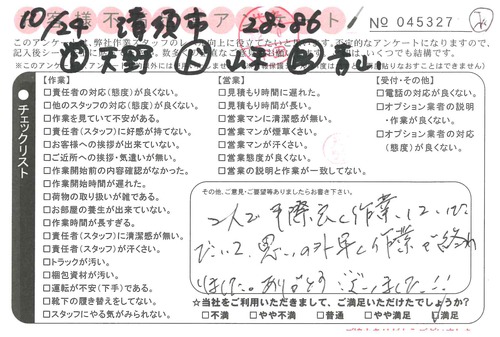 10/24 清須市 28-86
お客様不満足アンケート
№ 045327
このアンケートは、弊社作業スタッフのレベル向上に役立てたいと思います。不定的なアンケートになりますので、
営 天野 山本 青山
チェックリスト
【作業】
□責任者の対応(態度)が良くない。
□他のスタッフの対応(態度)が良くない。
□作業を見ていて不安がある。
□責任者(スタッフ)に好感が持てない。
□お客様への挨拶が出来ていない。
□ご近所への挨拶・気遣いが無い。
□作業開始前の内容確認がなかった。
□作業開始時間が遅れた。
□荷物の取り扱いが雑である。
□お部屋の養生が出来ていない。
□作業時間が長すぎる。
□責任者(スタッフ)に清潔感が無い。
□責任者(スタッフ)が汗くさい。
□トラックが汚い。
□梱包資材が汚い。
□運転が不安(下手)である。
□靴下の履き替えをしてない。
□スタッフにやる気がみられない。
【営業】
□見積もり時間に遅れた。
□見積もり時間が長い。
□営業マンに清潔感が無い。
□営業マンが煙草くさい。
□営業マンが汗くさい。
□営業態度が良くない。
□営業の説明と作業が一致してない。
【受付・その他】
□電話の対応が良くない。
□オプション業者の説明
・作業が良くない。
□オプション業者の対応
(態度)が良くない。
その他、ご意見・ご要望等ありましたらお書き下さい。
2人で手際良く作業していただ
いて、思いの外早く作業が終わ
りました。ありがとうございました!!
☆当社をご利用いただきまして、ご満足いただけたでしょうか?
□不満 □やや不満 □普通 □やや満足 □満足